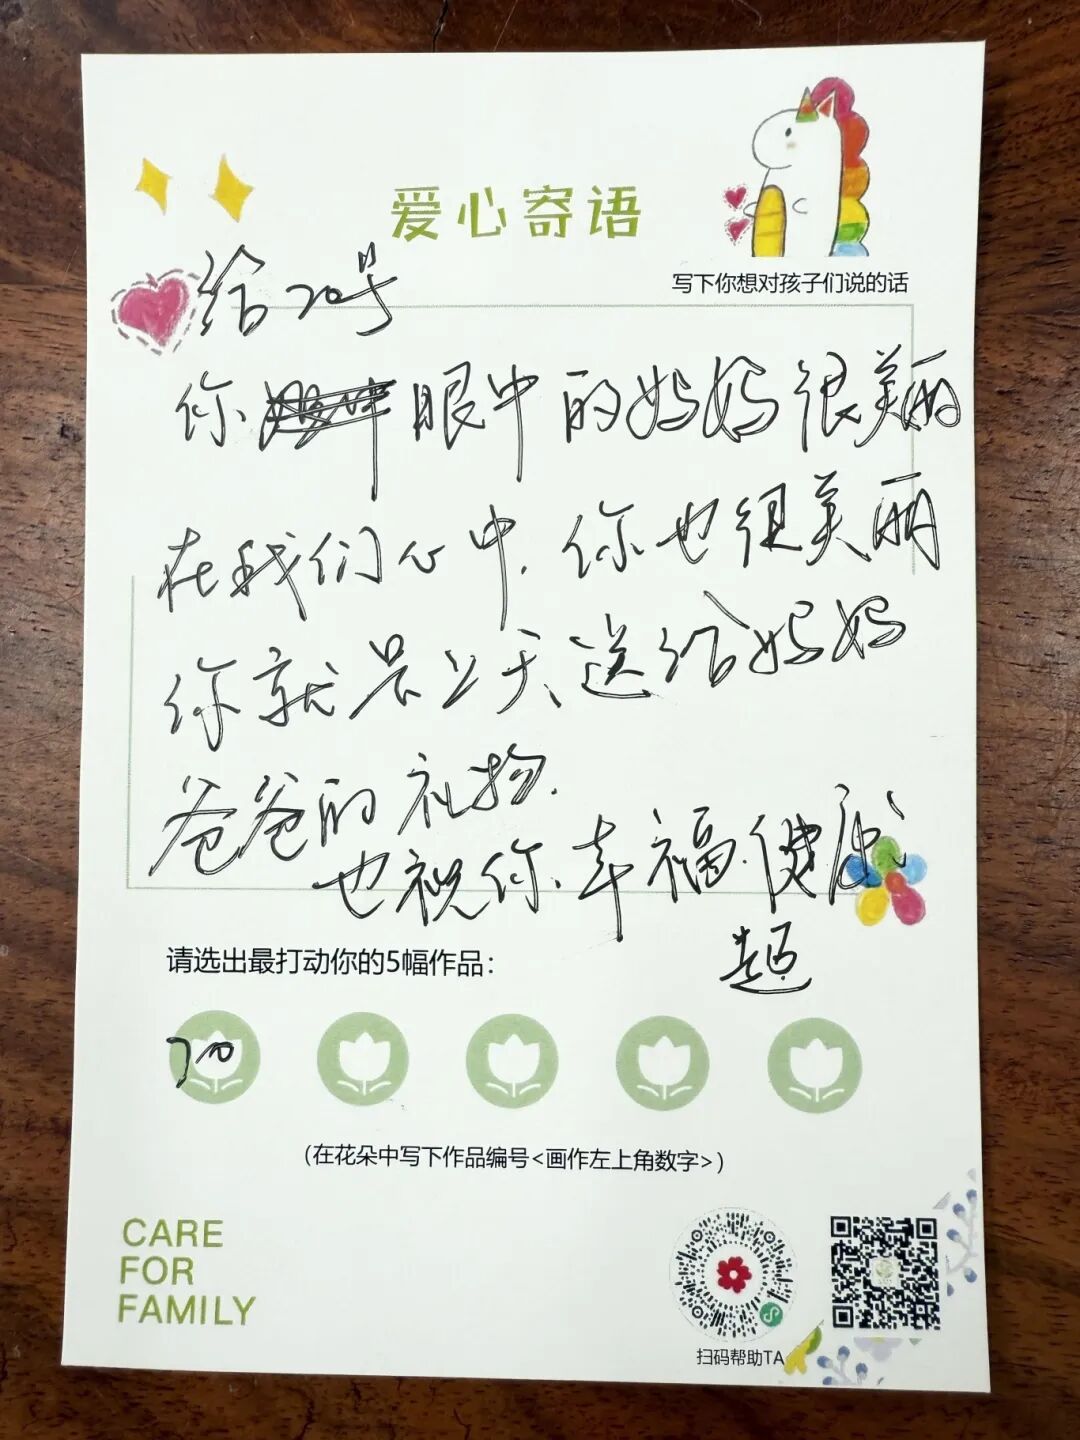 爱心寄语
写下你想对孩子们说的话
给70号
你眼中的妈妈很美丽
在我们心中.你也很美丽
你就是上天送给妈妈
爸爸的礼物.
也祝你.幸福.健康
超
请选出最打动你的5幅作品：
70
（在花朵中写下作品编号<画作左上角数字>）
CARE
FOR
FAMILY
扫码帮助TA